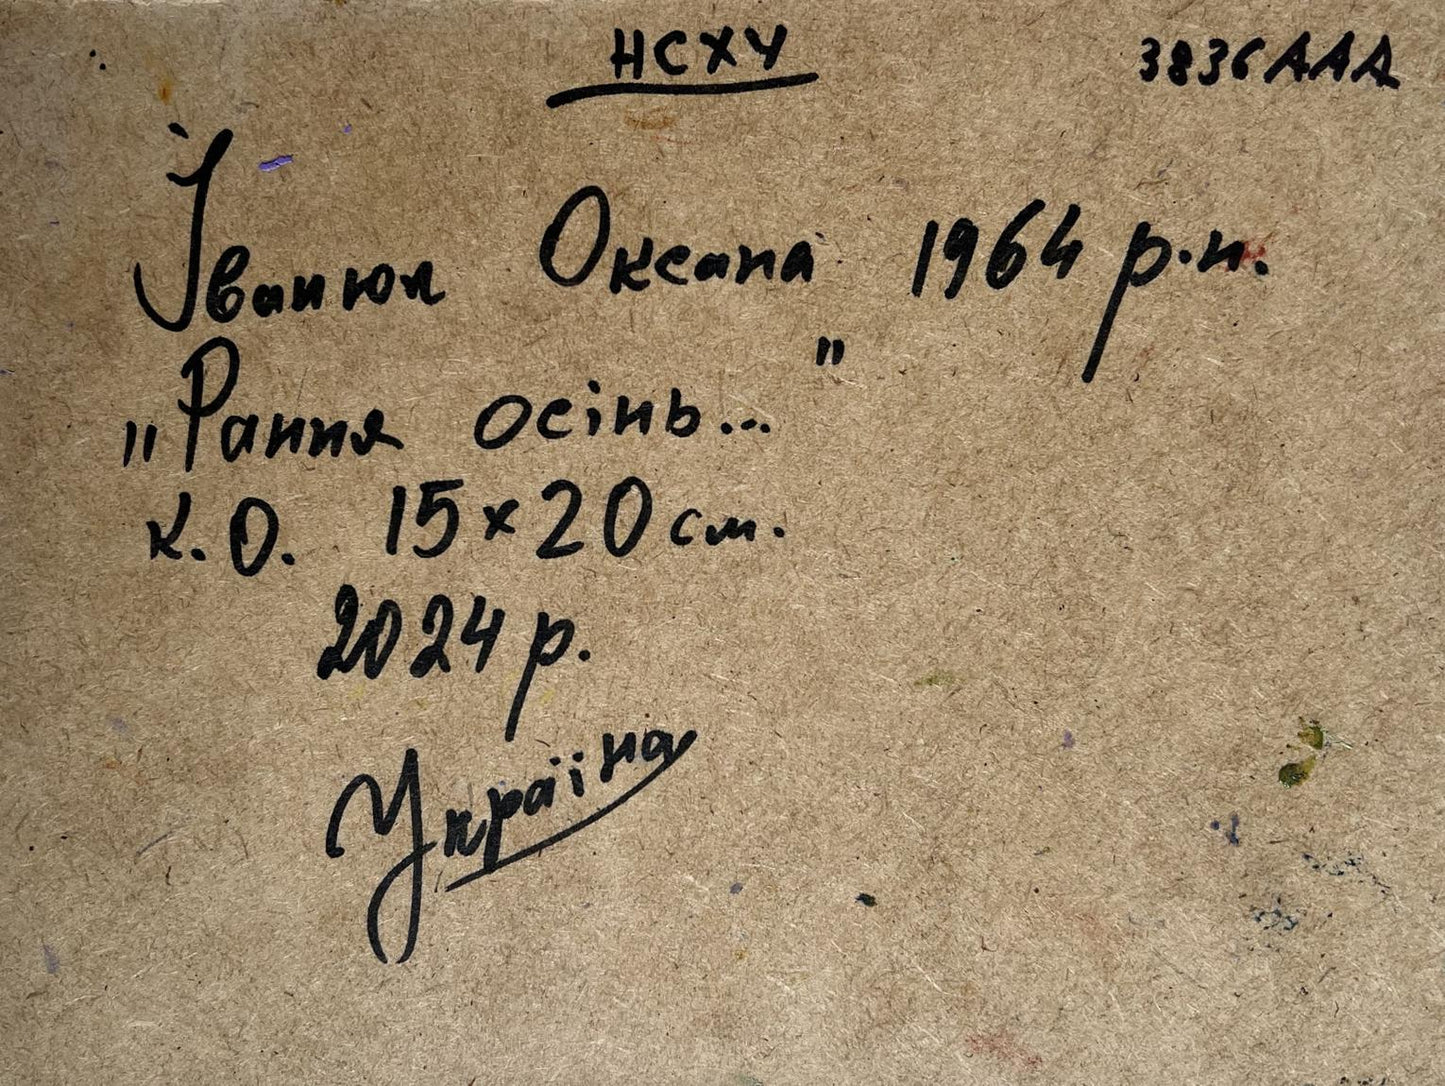 НСХУ 3836ААА
Іванюк Оксана 1964 р.н.
„Рання осінь..."
к.О. 15×20 см.
2024 р.
Україна